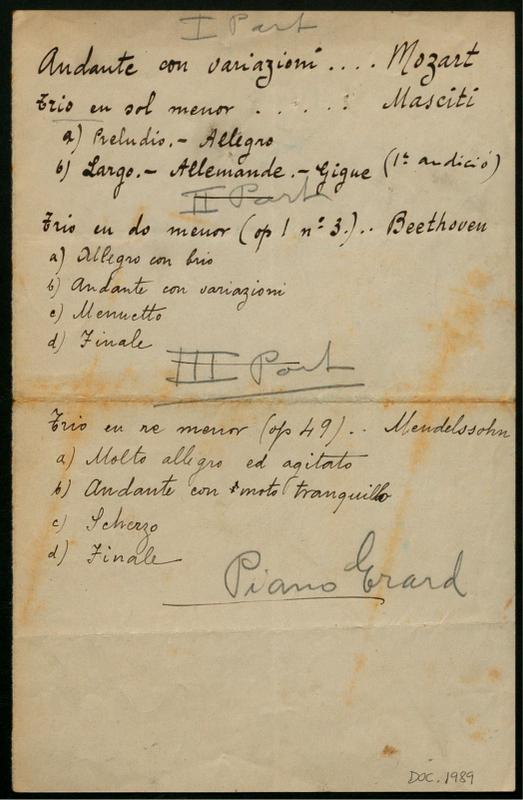 I Part
Andante con variazioni .... Mozart
Trio en sol menor . . . . . : Masciti
a) Preludio.- Allegro
b) Largo.- Allemande.- Gigue (1ª audició)
II Part
Trio en do menor (op 1 nº 3.) .. Beethoven
a) Allegro con brio
b) Andante con variazioni
c) Menuetto
d) Finale
III Part
Trio en re menor (op 49) .. Mendelssohn
a) Molto allegro ed agitato
b) Andante con moto tranquillo
c) Scherzo
d) Finale
Piano Erard
DOC. 1989